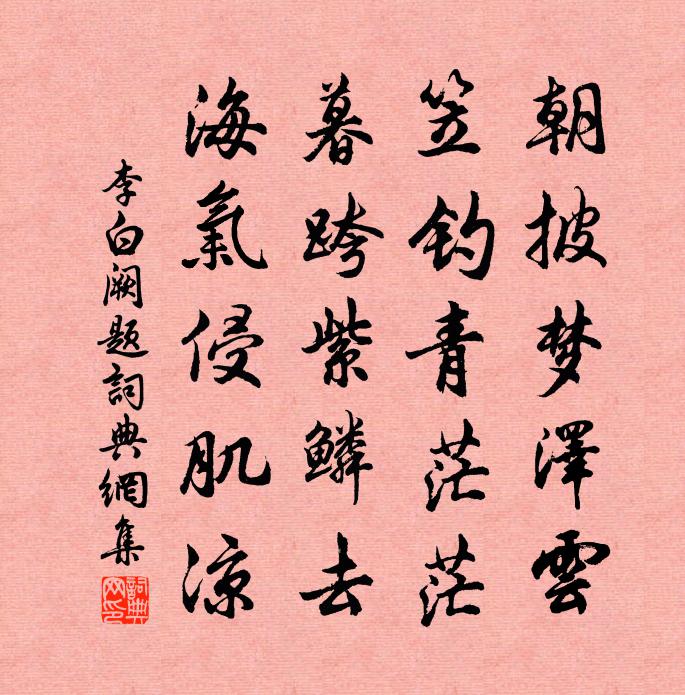 朝披梦澤雲
笠钓青茫茫
暮跨紫鳞去
海氣侵肌凉
李白阙题詞典網集
詞典网印